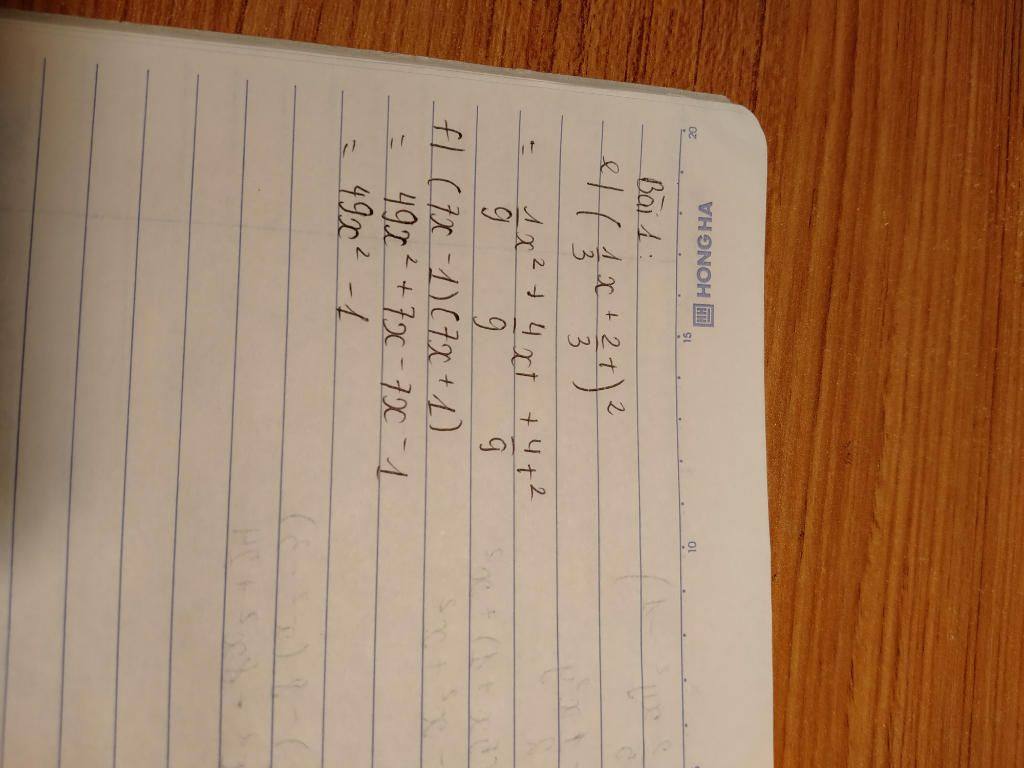 HONG HA
20 15 10
Bài 1:
e) ( 1/3 x + 2/3 t )²
= 1/9 x² + 4/9 xt + 4/9 t²
f) (7x - 1)(7x + 1)
= 49x² + 7x - 7x - 1
= 49x² - 1